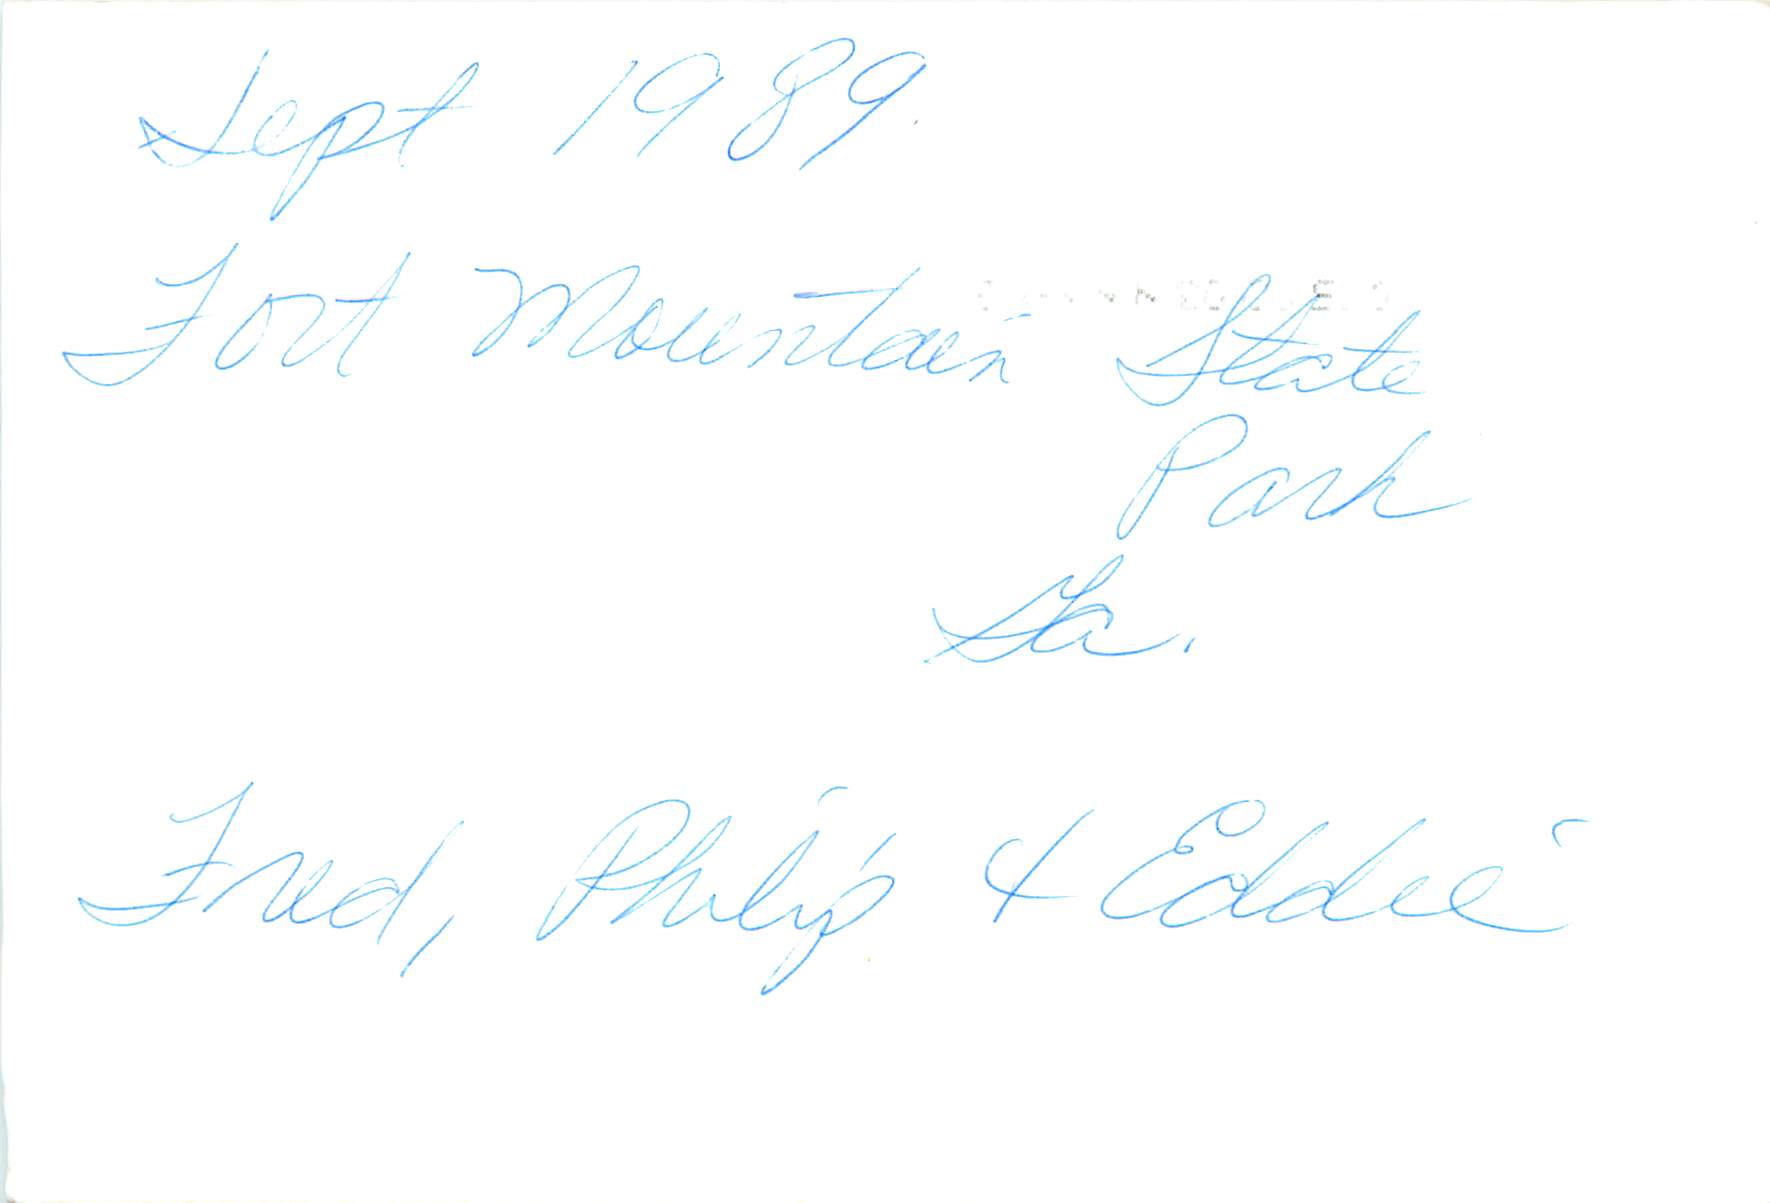 Sept 1989.
Fort Mountain State
Park
Ga.
Fred, Philip & Eddie